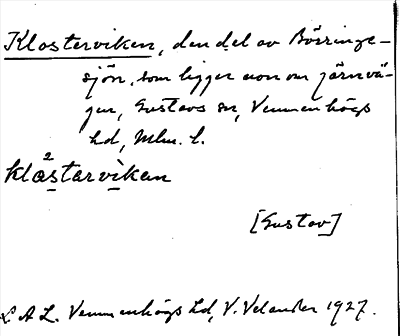 Klosterviken, den del av Börringe-
sjön, som ligger norr om järnvä-
gen, Gustavs sn, Vemmenhögs
hd, Mlm. l.
klåstarvikan
[Gustav]
L.A.L. Vemmenhögs hd, V. Velander 1927.